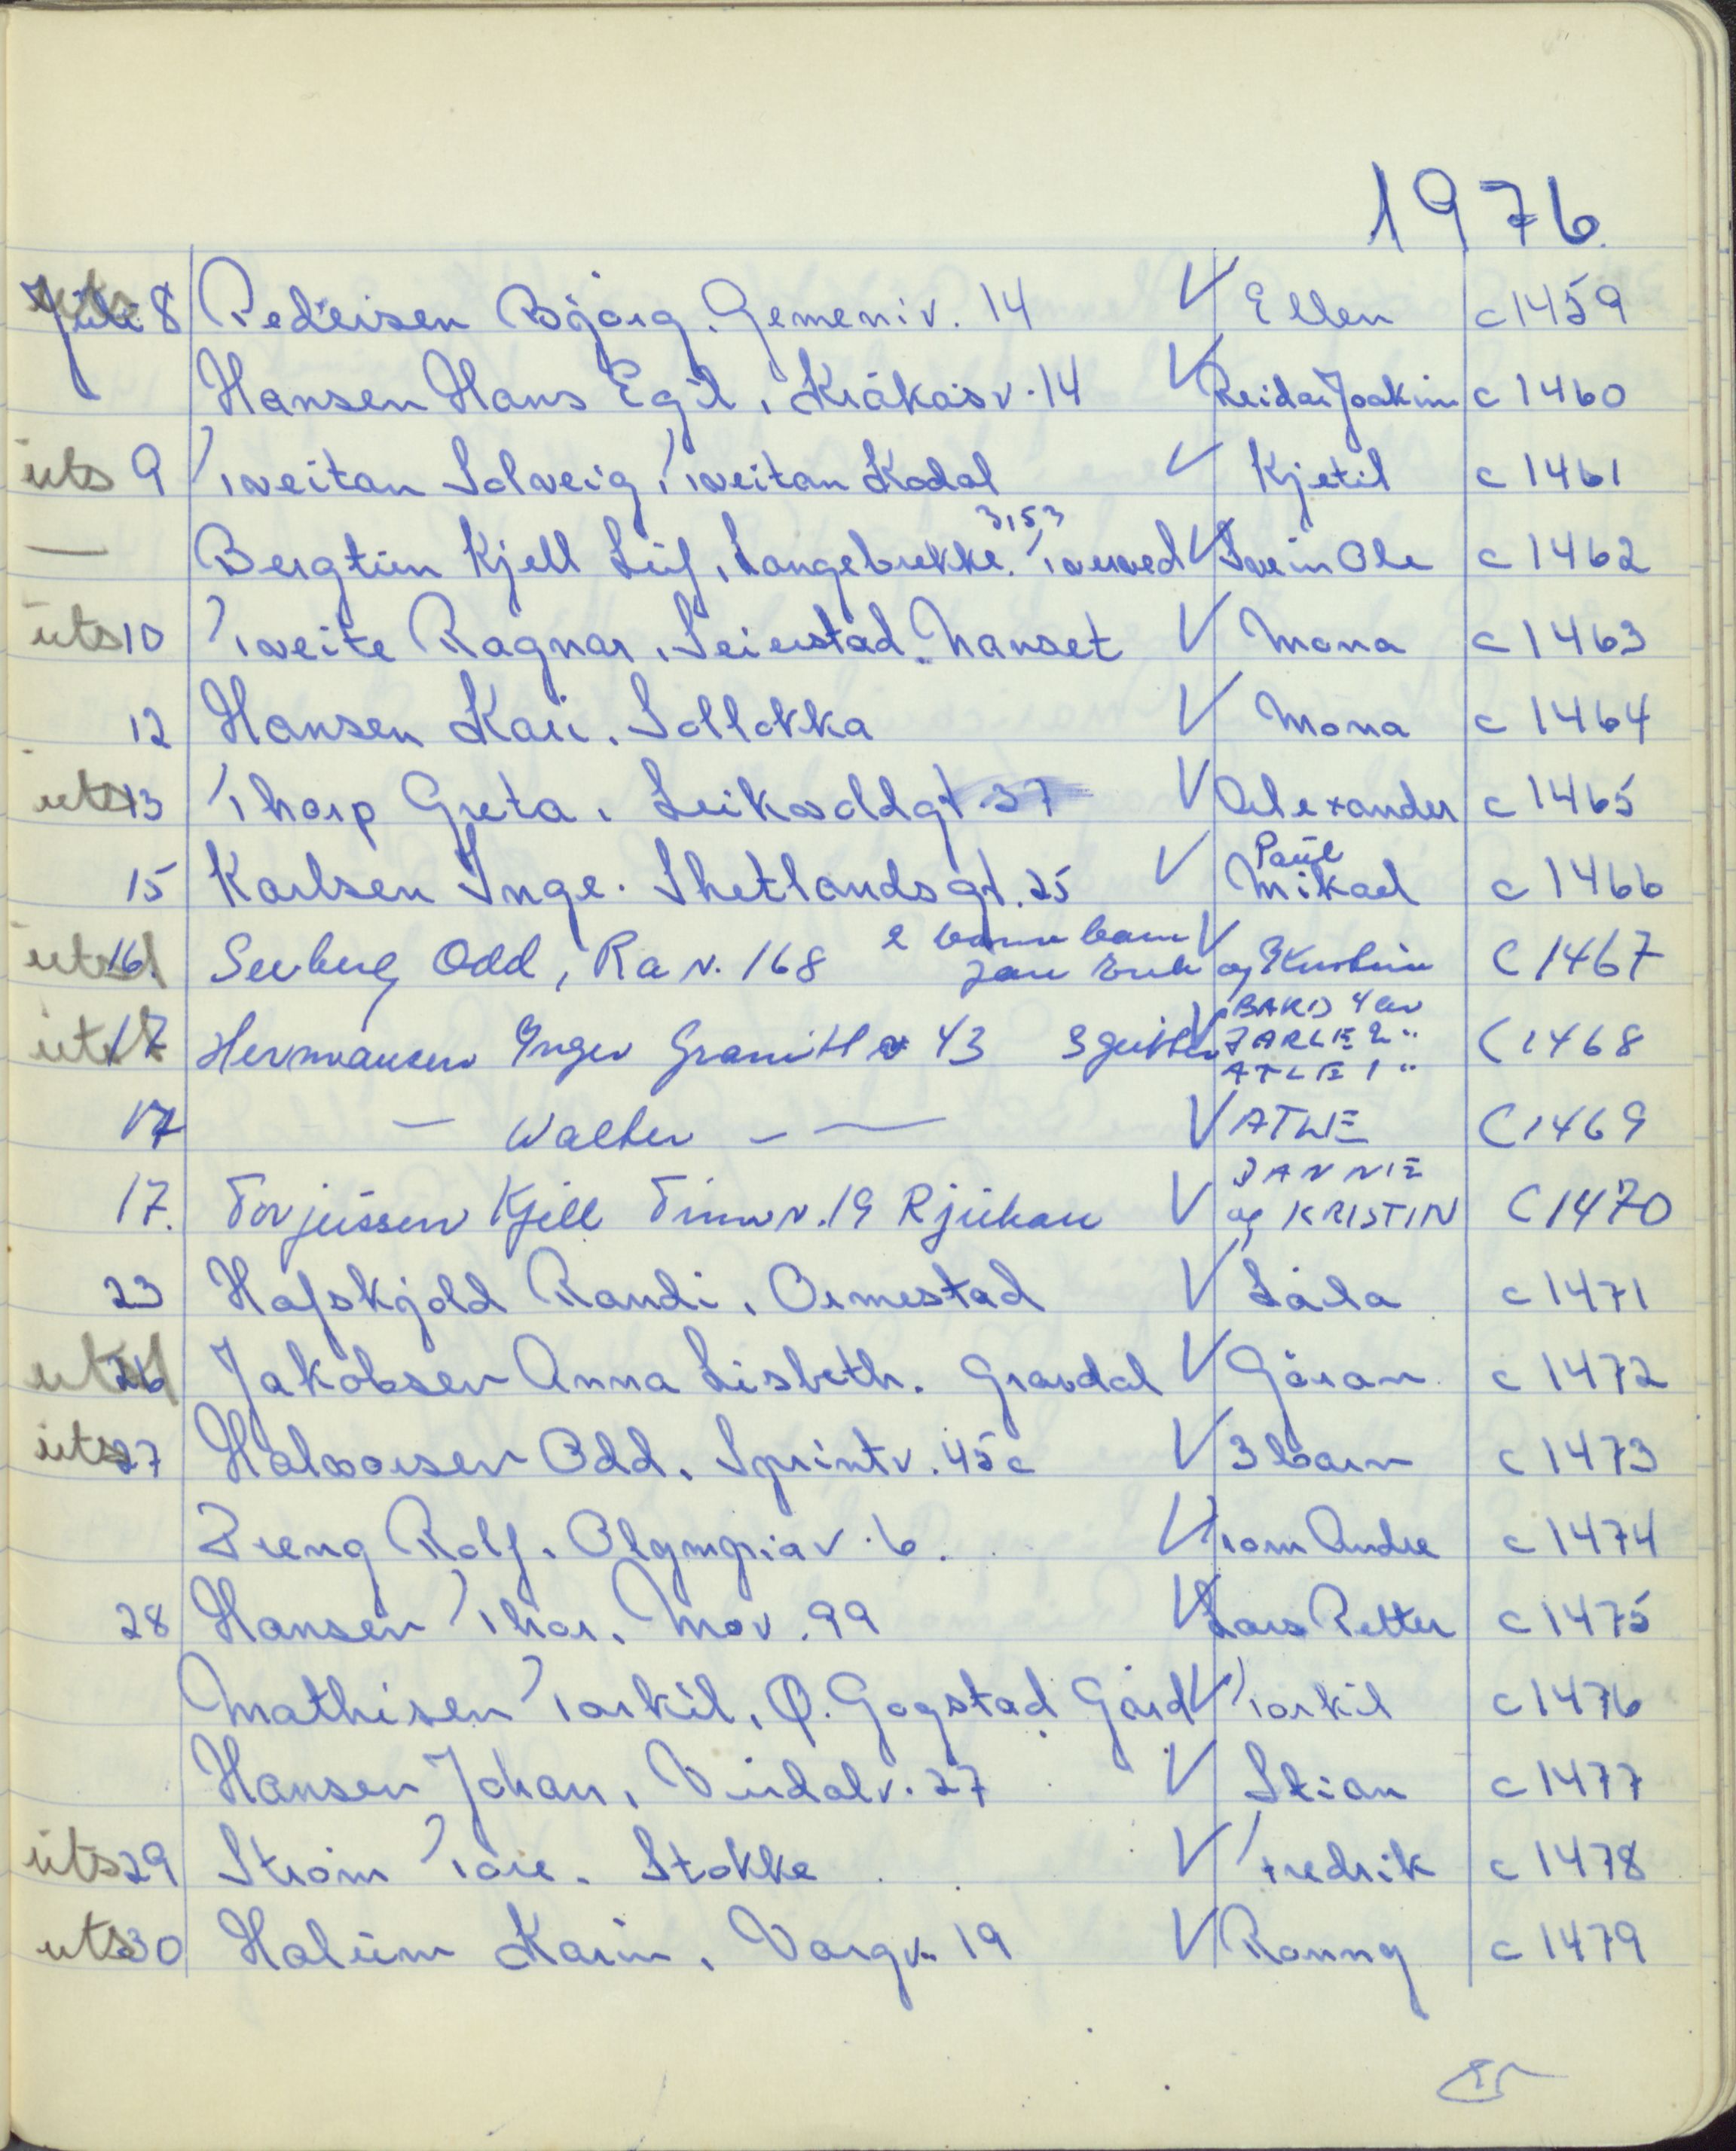 1976
Juli 8 Pedersen Bjørg. Gemeniv. 14 V Ellen c 1459
Hansen Hans Egil, Kråkåsv. 14 V Reidar Joakim c 1460
uts 9 Tveitan Solveig, Tveitan Kodal V Kjetil c 1461
3153
— Bergtun Kjell Leif, Langebrekke. Tverved V Svein Ole c 1462
uts 10 Tveite Ragnar, Seierstad. Nanset V Mona c 1463
12 Hansen Kari. Solløkka V Mona c 1464
uts 13 Thorp Greta, Leikvoldgt 37 V Alexander c 1465
Paul
15 Karlsen Inge. Shetlandsgt. 25 V Mikael c 1466
2 barnebarn
uts 16. Seeberg Odd, Ra v. 168 Jan Erik V og Kristin C 1467
BÅRD 4 år
uts 17 Hermansen Inger Granitt v 43 3 gutter V JARLE 2 "
ATLE 1 " C 1468
17 — Walter — — V ATLE C 1469
JANNIE
17. Torjussen Kjell Tinnv. 19 Rjukan V og KRISTIN C 1470
23 Hafskjold Randi, Ormestad V Laila c 1471
uts 26 Jakobsen Anna Lisbeth. Gravdal V Gøran c 1472
uts 27 Halvorsen Odd. Sprintv. 45c V 3 barn c 1473
Dreng Rolf. Olympiav. 6. V Tom Andre c 1474
28 Hansen Thor. Mov. 99 V Lars Petter c 1475
Mathisen Torkil, Ø. Gogstad Gård V Torkil c 1476
Hansen Johan, Virdalv. 27 V Stian c 1477
uts 29 Strøm Tore. Stokke V Fredrik c 1478
uts 30 Halum Karin, Vargv. 19 V Ronny c 1479